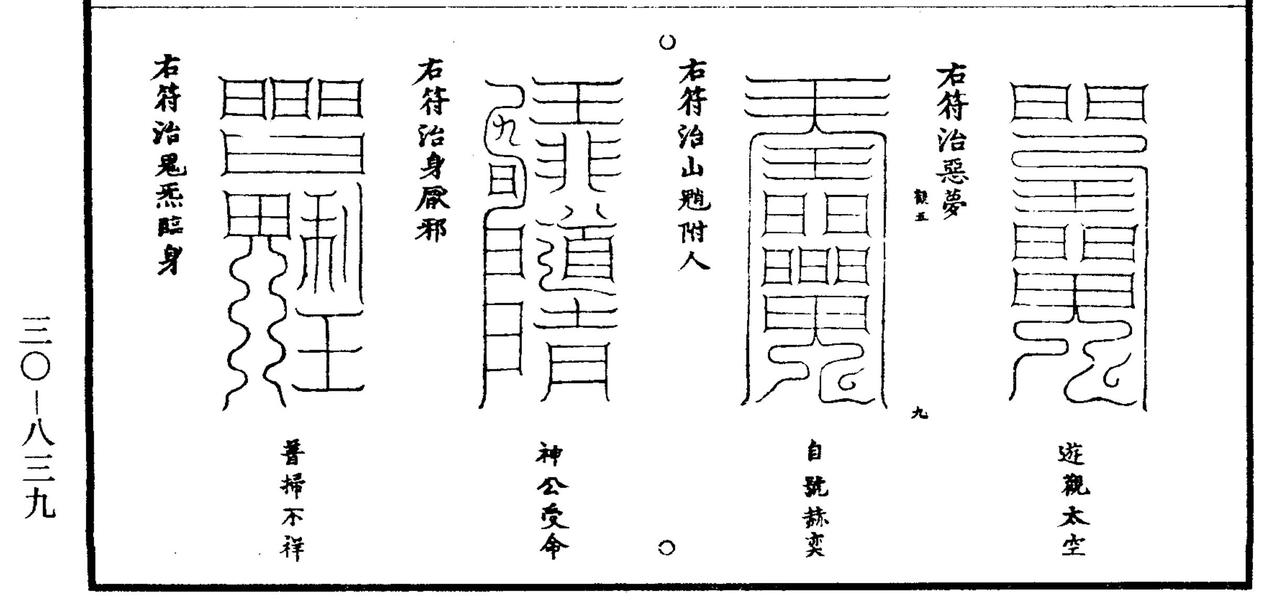 遊觀太空
右符治惡夢
觀五
九
自號赫奕
右符治山魈附人
神公受命
右符治身厭邪
普掃不祥
右符治鬼炁臨身
三〇－八三九